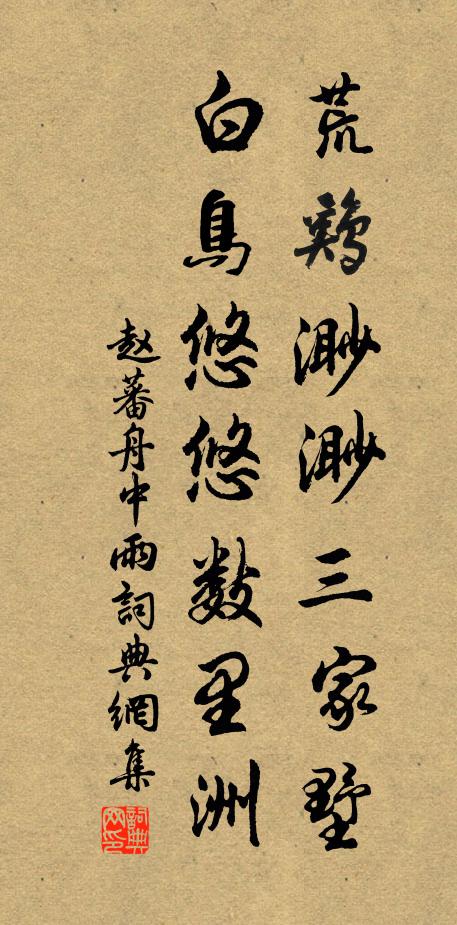 荒鷄渺渺三家墅
白鳥悠悠數里洲
赵蕃舟中雨詞典網集
詞典网印